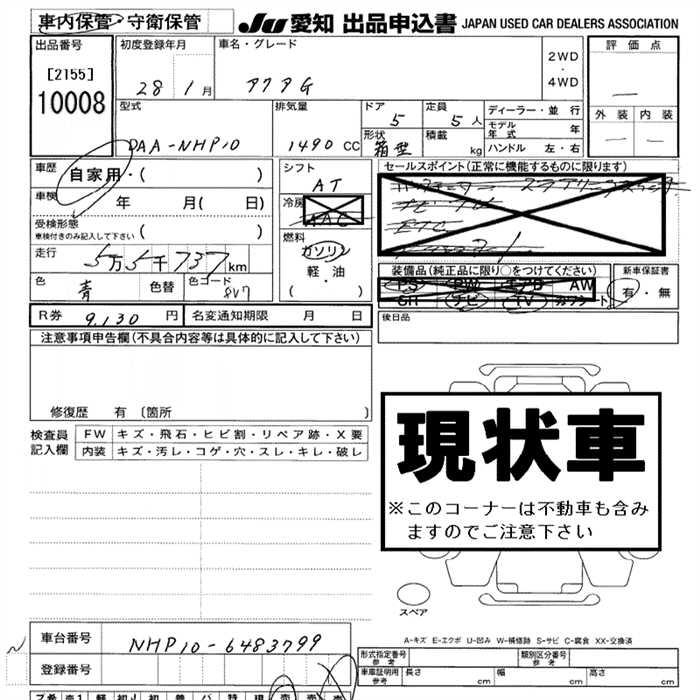 車内保管・守衛保管 JU 愛知 出品申込書 JAPAN USED CAR DEALERS ASSOCIATION
出品番号 初度登録年月 車名・グレード 評価点
[2155] 28 1月 アクアG 2WD・4WD —
10008 型式 排気量 ドア 5 定員 5人 ディーラー・並行 外装 内装
DAA-NHP10 1490 CC 形状 箱型 積載 kg モデル年式 年 — —
ハンドル 左・右
車歴 自家用・( ) シフト AT セールスポイント(正常に機能するものに限ります)
車検 年 月( 日) 冷房 AAC
受検形態 ( ) ETC
車検付きのみ記入して下さい 燃料
走行 5万5千737km ガソリン
色 青 色替 色コード 8V7 軽・油 装備品(純正品に限り○をつけてください) 新車保証書
( ) PS PW エアB AW 有・無
SR ナビ TV カワシート
R券 9,130円 名変通知期限 月 日 後日品
注意事項申告欄(不具合内容等は具体的に記入して下さい)
修復歴 有 [箇所 ]
検査員 FW キズ・飛石・ヒビ割・リペア跡・X要
記入欄 内装 キズ・汚レ・コゲ・穴・スレ・キレ・破レ
現状車
※このコーナーは不動車も含み
ますのでご注意下さい
スペア
A-キズ E-エクボ U-凹み W-補修跡 S-サビ C-腐食 XX-交換済
車台番号 NHP10-6483799
登録番号
形式指定番号 参考 類別区分番号 参考
車庫証明用 参考 長さ cm 幅 cm 高さ cm